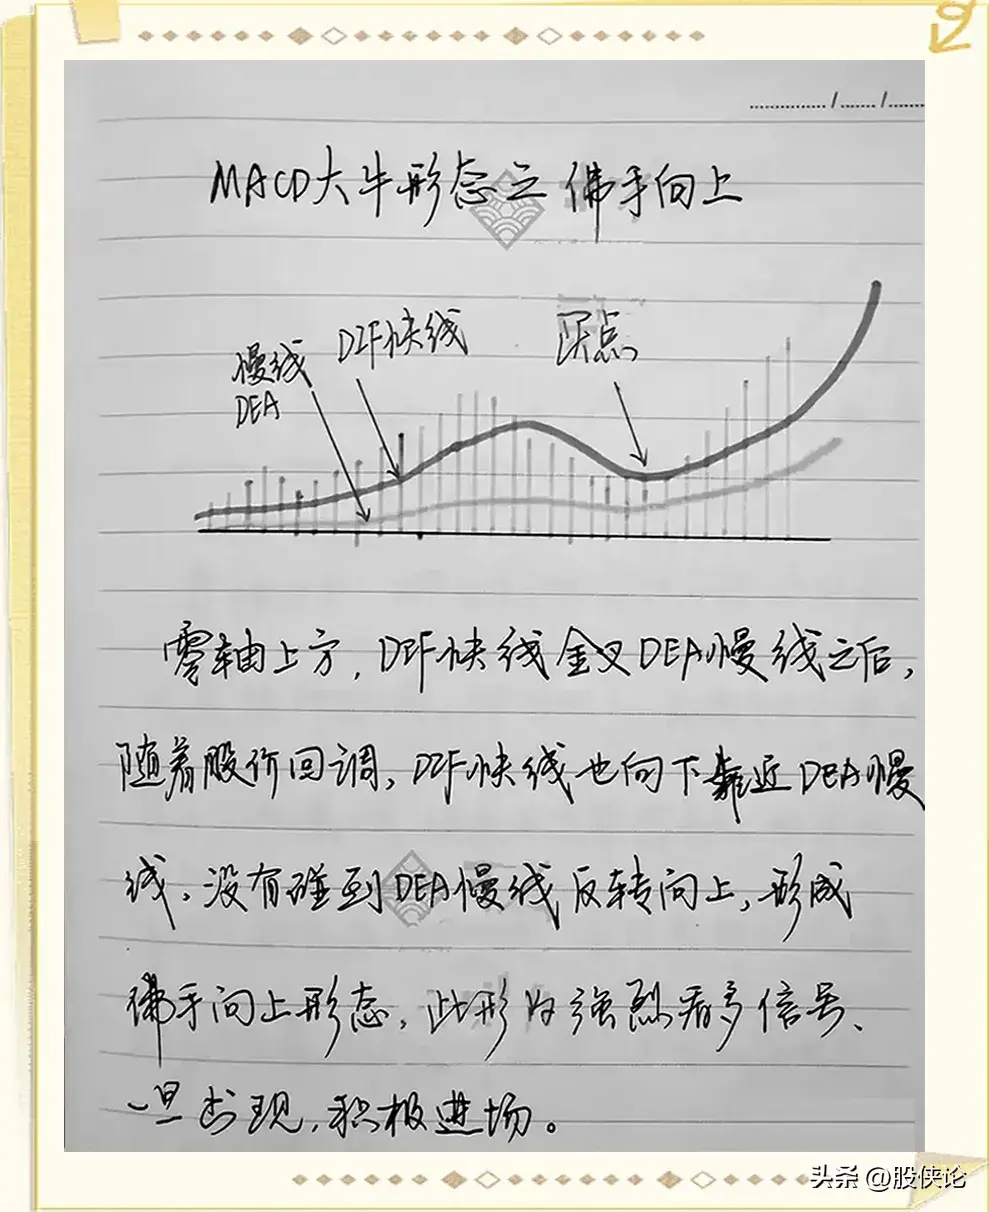 ............../......./.......
MACD大牛形态之佛手向上
DIF快线
买点
慢线
DEA
零轴上方,DIF快线金叉DEA慢线之后,
随着股价回调,DIF快线也向下靠近DEA慢
线,没有碰到DEA慢线反转向上,形成
佛手向上形态,此形为强烈看多信号、
一旦出现,积极进场。
头条 @股侠论